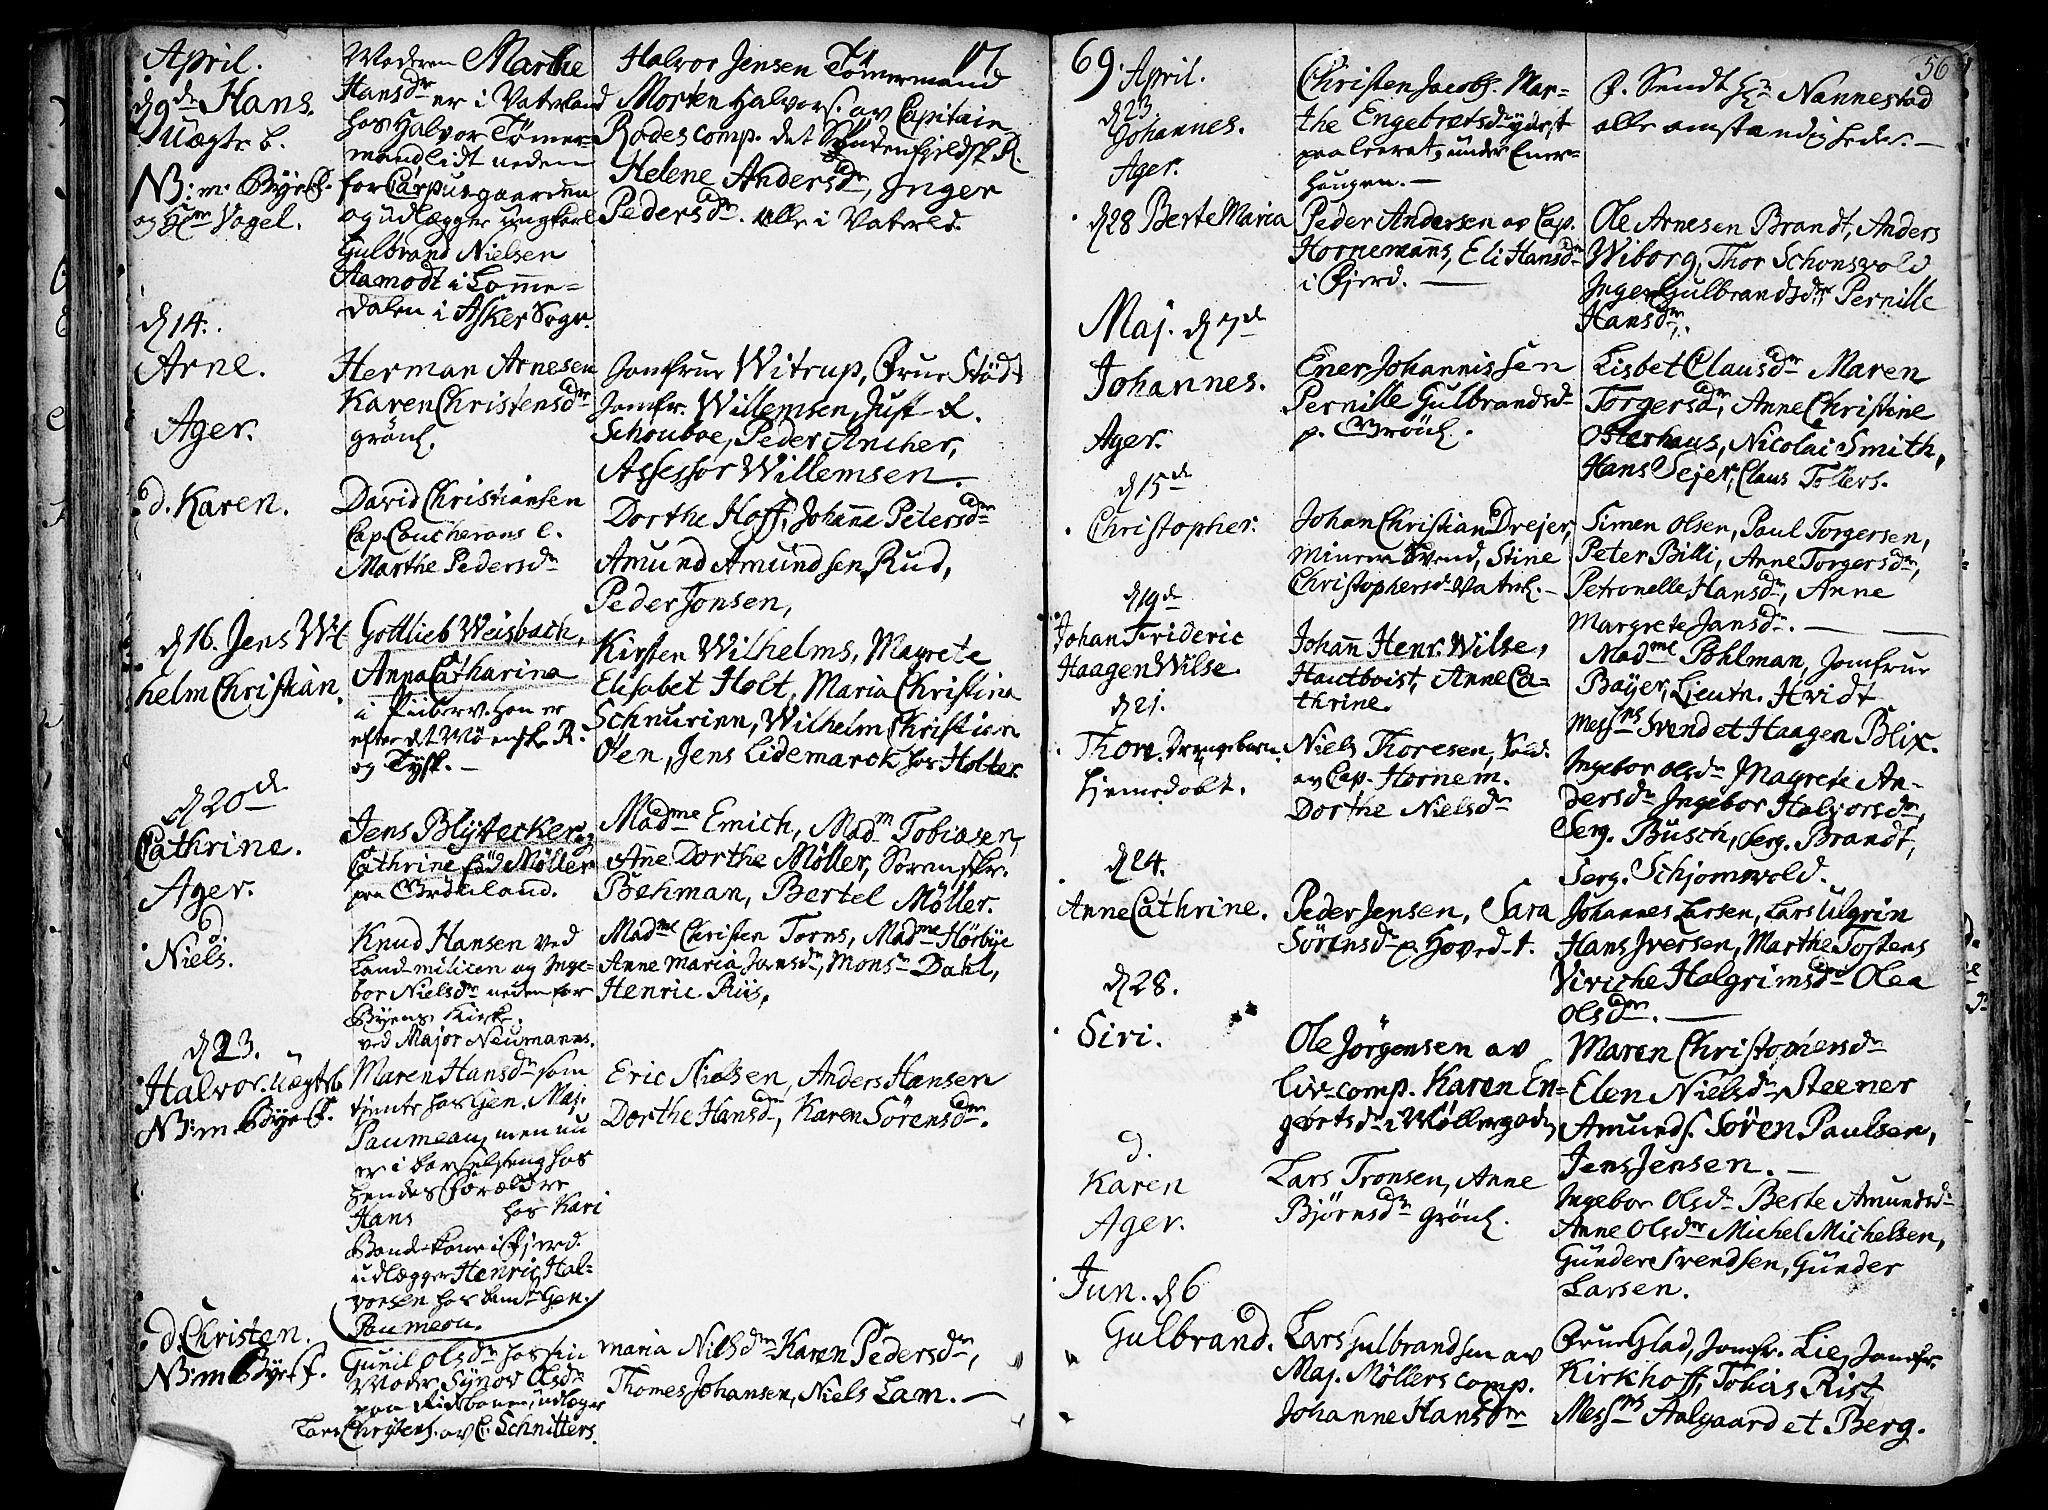 April.
d 9de Hans.
Uægte b.
NB: m. Byesk.
og Hr Vogel.
Moderen Marthe
Hansdr er i Vaterland
hos Halvor Tömer-
mand lidt neden
for Carpusgaarden
og udlægger ungkarl
Gulbrand Nielsen
Aamodt i Lomme-
dalen i Asker Sogn.
Halvor Jensen Tömermand
Morten Halvors. av Capitain
Rodes comp. det Syndenfjeldsk R.
Helene Andersdr, Inger
Pedersdr. alle i Vaterld.
17
d 14.
Arne.
Ager.
Herman Arnesen
Karen Christensdr
grönl.
Jomfrue Witrup, Frue Stödt
Jomfr. Willemsen, Just
Schouboe, Peder Ancher,
Assessor Willemsen.
d. Karen.
David Christiansen
Cap. Coucherons C.
Marthe Pedersdr
Dorthe Hoff, Johanne Petersdr
Amund Amundsen Rud,
Peder Jonsen,
d 16. Jens Wil
helm Christian.
Gottlieb Weisbach,
Anna Catharina
i Piiberv. hon er
efter det Mörenske R.
og Tysk.
Kirsten Wilhelms, Magrete
Elisabet Holt, Maria Christina
Schnurien, Wilhelm Christian
Öen, Jens Lidemarck hos Holter.
d 20de
Cathrine.
Ager.
Jens Blytecker,
Cathrine föd Möller
paa Grönland.
Madme Emich, Madm Tobiasen,
Ane Dorthe Möller, Sorenskr.
Behman, Bertel Möller.
d
Niels.
Knud Hansen ved
Landmilicen og Inge-
bor Nielsdr neden for
Byens Kirke.
ved Major Neumanns.
Madme Christen Torns, Madme Hörbye
Anne Maria Jansdr, Monsr Dahl,
Henric Riis,
d 23.
Halvor. Uægteb
NB: m. Byesk.
Maren Hansdr som
tiente hos Gen. Maj.
Paumeau, men nu
er i barselseng hos
hendes forældre
Hans hos Kari
Bondekone i Fjerd.
udlægger Henric Hal-
vorsen hos bemte Gen.
Paumeau.
Eric Nielsen, Anders Hansen
Dorthe Hansdr, Karen Sörensdr.
d. Christen.
NB: m Byesk.
Gunil Olsdr hos sin
Moder Synov Olsdr
paa Ridebanen, udlægger
Lars Christens. av C. Schnitters.
Maria Nielsdr Karen Pedersdr,
Thomes Johansen, Niels Lam.
69. April.
d 23
Johannes.
Ager.
Christen Jacobs. Mar-
the Engebretsdr yderst
paa leeret, under Ener-
haugen.
p. Sendt Hr Nannestad
alle omstændigheder.
56
d 28 Berte Maria
Peder Andersen av Cap.
Hornemanns, Eli Hansdr
i Fjerd.
Ole Arnesen Brandt, Anders
Wiborg, Thor Schonsvold
Inger Gulbrandsdr, Pernille
Hansdr.
Maj. d 7de
Johannes.
Ager.
Ener Johannissen
Pernille Gulbrandsdr
p. Grönl.
Lisbet Clausdr Maren
Torgersdr, Anne Christine
Osterhaus, Nicolai Smith,
Hans Vejer, Claus Tollers.
d 15de
Christopher.
Johan Christian Drejer,
Minerer Svend, Stine
Christophersdr Vaterl.
Simen Olsen, Paul Torgersen,
Peter Billi, Anne Torgersdr,
Petronelle Hansdr, Anne
Margrete Jansdr.
d 19de
Johan Frideric
Haagen Wilse
Johann Henr. Wilse,
Hautboist, Anne Ca-
thrine.
Madme Pohlman, Jomfrue
Bajer, Lieutn. Hvidt
Messrs Svend et Haagen Blix.
d 21.
Thore. Drengebarn.
hiemedöbt.
Niels Thoresen, Sold.
av Cap. Hornem.
Dorthe Nielsdr
Ingebor Olsdr Magrete An-
dersdr Ingebor Halvorsdr,
Serg. Busch, Serg. Brandt,
Serg. Schjomsvold.
d 24.
Anne Cathrine.
Peder Jensen, Sara
Sörensdr p. Hoved-t.
Johannes Larsen, Lars Ulgrin
Hans Iversen, Marthe Tostens
Viriche Halgrimsdr Olea
Olsdr.
d 28.
Siri.
Ole Jörgensen av
Liv-comp. Karen En-
gertsdr i Möllergaden
Maren Christophersdr
Elen Nielsdr, Steener
Amunds. Sören Paulsen,
Jens Jensen.
d.
Karen
Ager.
Lars Tronsen, Anne
Björnsdr grönl.
Ingebor Olsdr Berte Amundsdr
Anne Olsdr Michel Michelsen,
Gunder Svendsen, Gunder
Larsen.
Jun. d 6
Gulbrand.
Lars Gulbrandsen av
Maj. Möllers comp.
Johanne Hansdr
Frue Glad, Jomfr. Lie, Jomfr.
Kirkhoff, Tobias Rist,
Messrs Aalgaard et Berg.